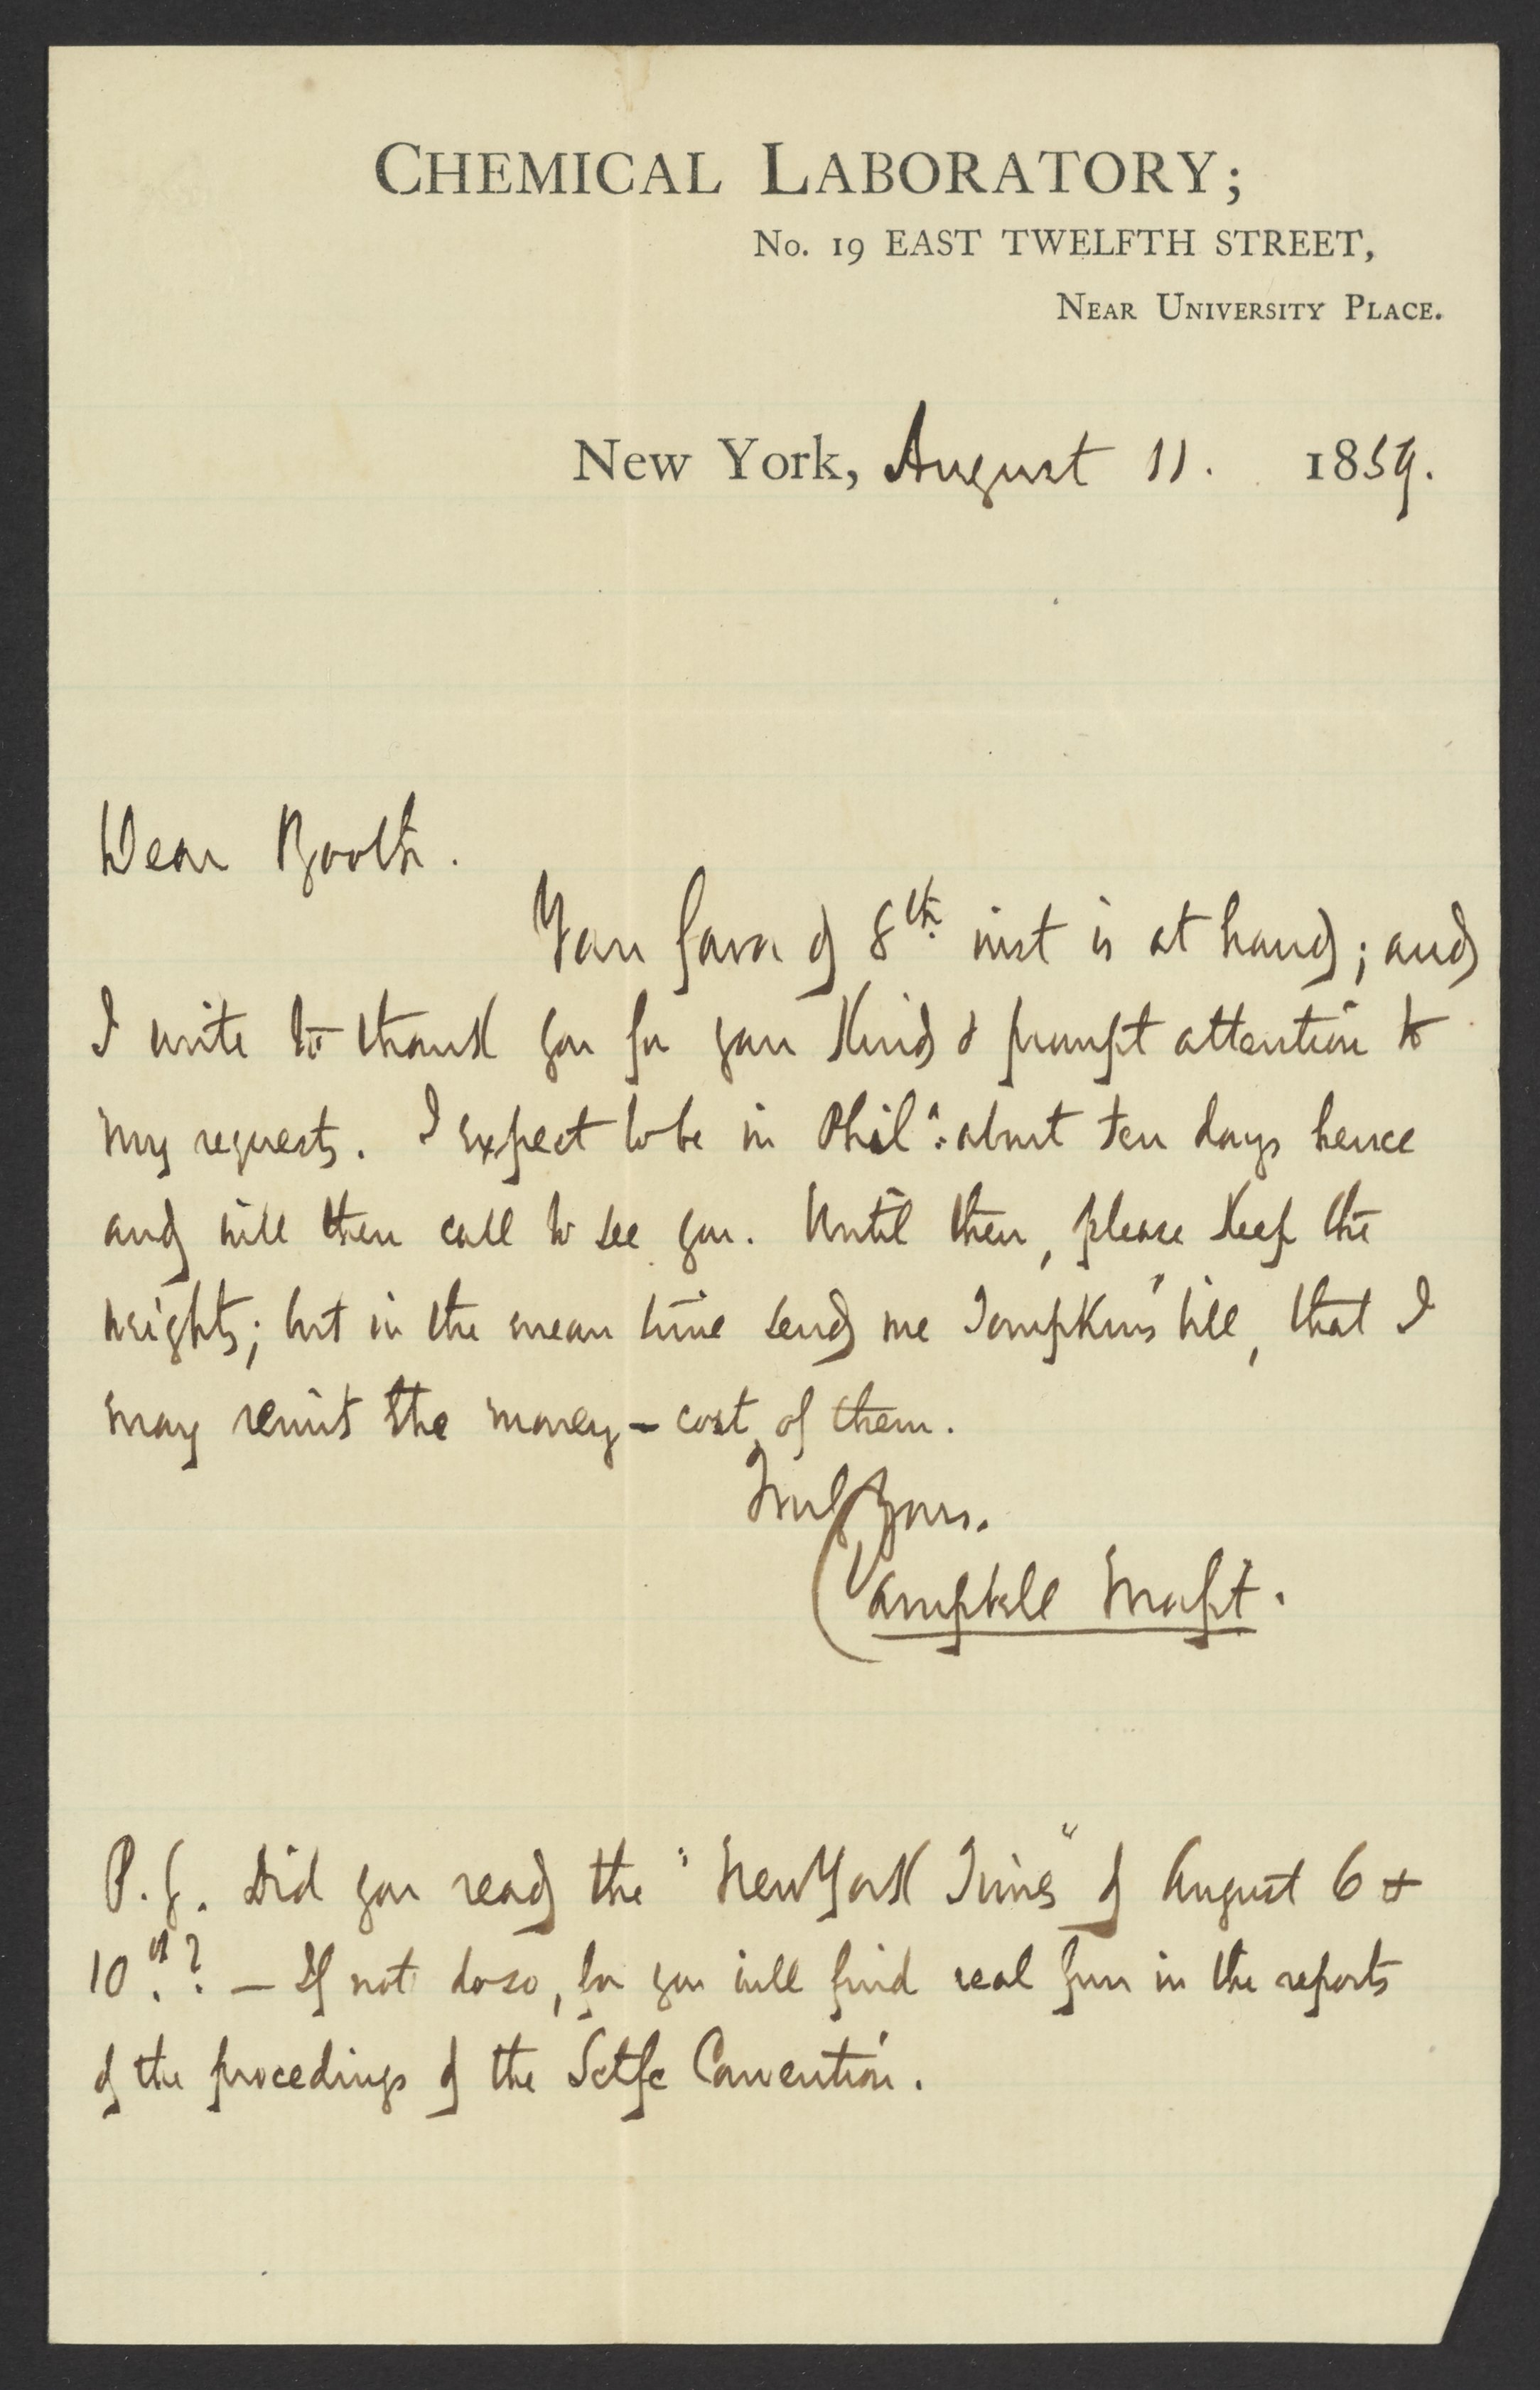 CHEMICAL LABORATORY;
No. 19 EAST TWELFTH STREET,
NEAR UNIVERSITY PLACE.
New York, August 11. 1859.
Dear Booth.
Your favor of 8th inst is at hand; and
I write to thank you for your kind & prompt attention to
my requests. I expect to be in Phila: about ten days hence
and will then call to see you. Until then, please keep the
weights; but in the mean time send me Tompkins' bill, that I
may remit the money - cost, of them.
Truly Yours.
Campbell Morfit.
P.S. Did you read the "New York Times" of August 6 &
10th? — If not do so, for you will find real fun in the reports
of the procedings of the Sctfc Convention.